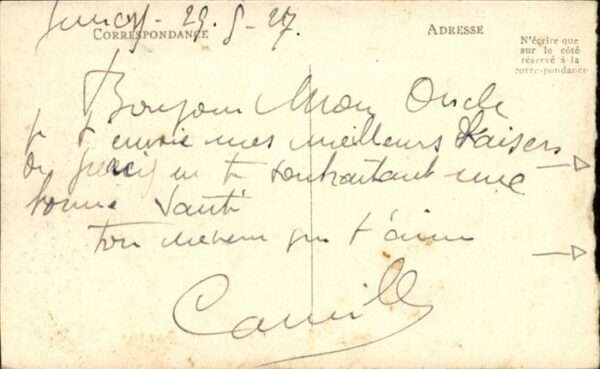 29-8-27.
CORRESPONDANCE
ADRESSE
N'écrire que
sur le côté
réservé à la
correspondance
Bonjour Mon Oncle
je t'envoie mes meilleurs Baisers
de en te souhaitant une
bonne Santé
ton neveu qui t'aime
Camille